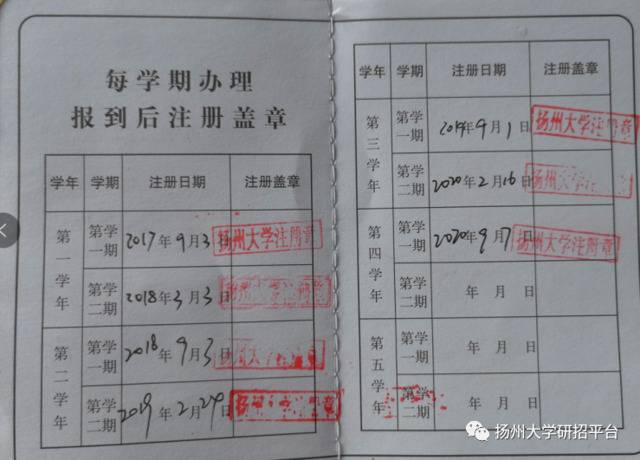 每学期办理
报到后注册盖章
学年 学期 注册日期 注册盖章
第一学年 第一学期 2017年9月3日 扬州大学注册章
第二学期 2018年3月3日 扬州大学注册章
第二学年 第一学期 2018年9月3日
第二学期 2019年2月24日 扬州大学注册章
学年 学期 注册日期 注册盖章
第三学年 第一学期 2019年9月1日 扬州大学注册章
第二学期 2020年2月16日 扬州大学注册章
第四学年 第一学期 2020年9月7日 扬州大学注册章
第二学期 年 月 日
第五学年 第一学期 年 月 日
第二学期 年 月 日
扬州大学研招平台